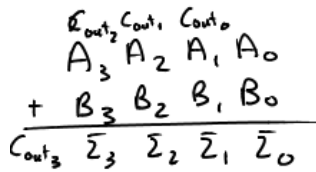 C_out₂ C_out₁ C_out₀
A₃ A₂ A₁ A₀
+ B₃ B₂ B₁ B₀
C_out₃ Σ₃ Σ₂ Σ₁ Σ₀